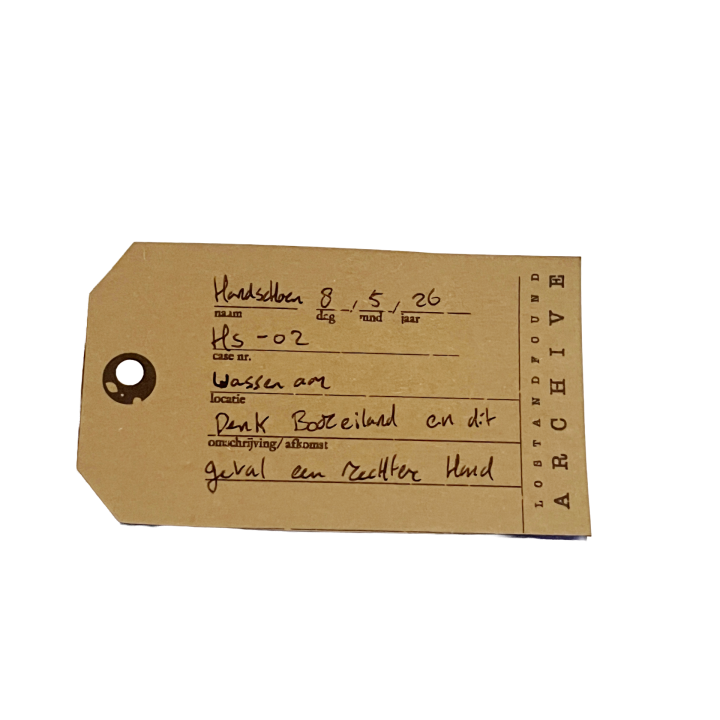 Handschoen 8 / 5 / 26
naam dag mnd jaar
Hs-02
case nr.
Wassenaar
locatie
Denk en dit
omschrijving/ afkomst
geval een rechter Hand
LOSTANDFOUND
ARCHIVE